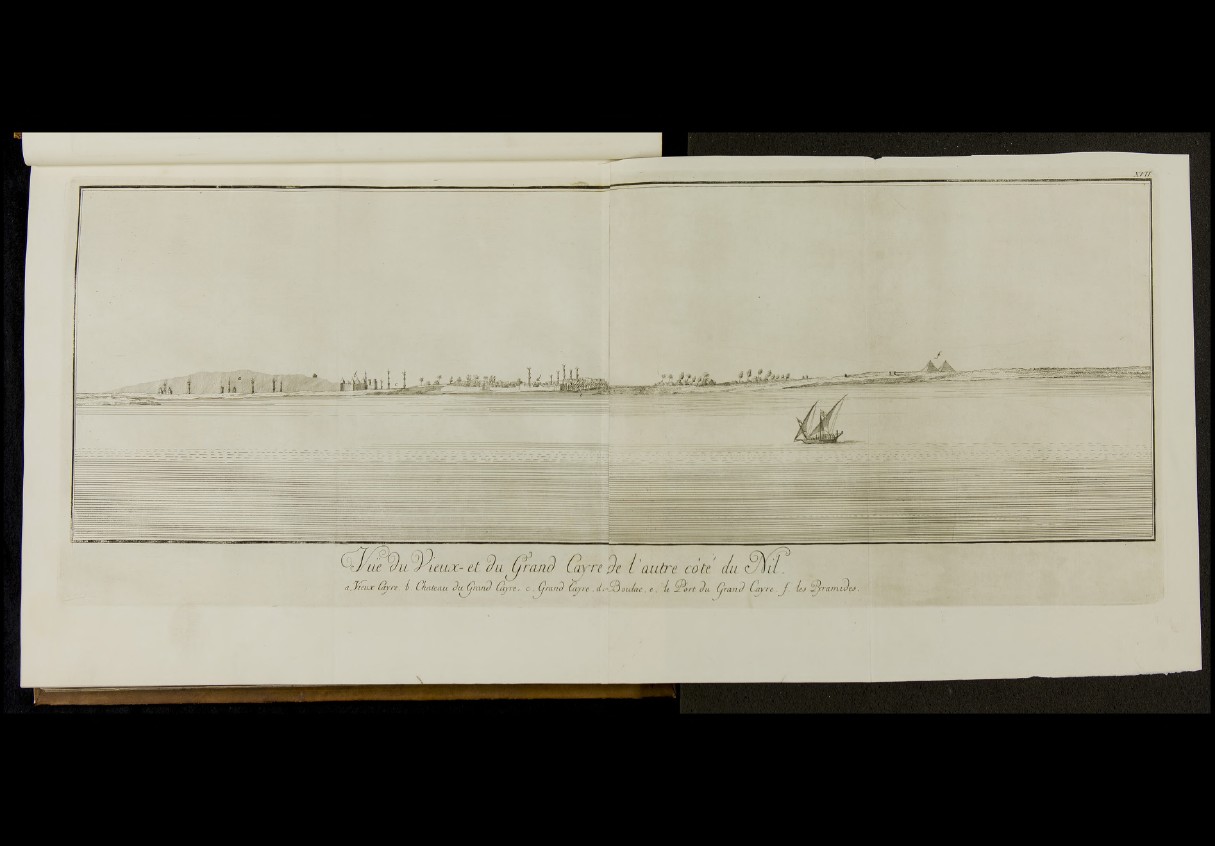 XVII
Vüe du Vieux-et du Grand Cayre de l'autre côté du Nil.
a. Vieux Cayre. b. Chateau du Grand Cayre. c. Grand Cayre. d. Boulac. e. le Port du Grand Cayre. f. les Pyramides.